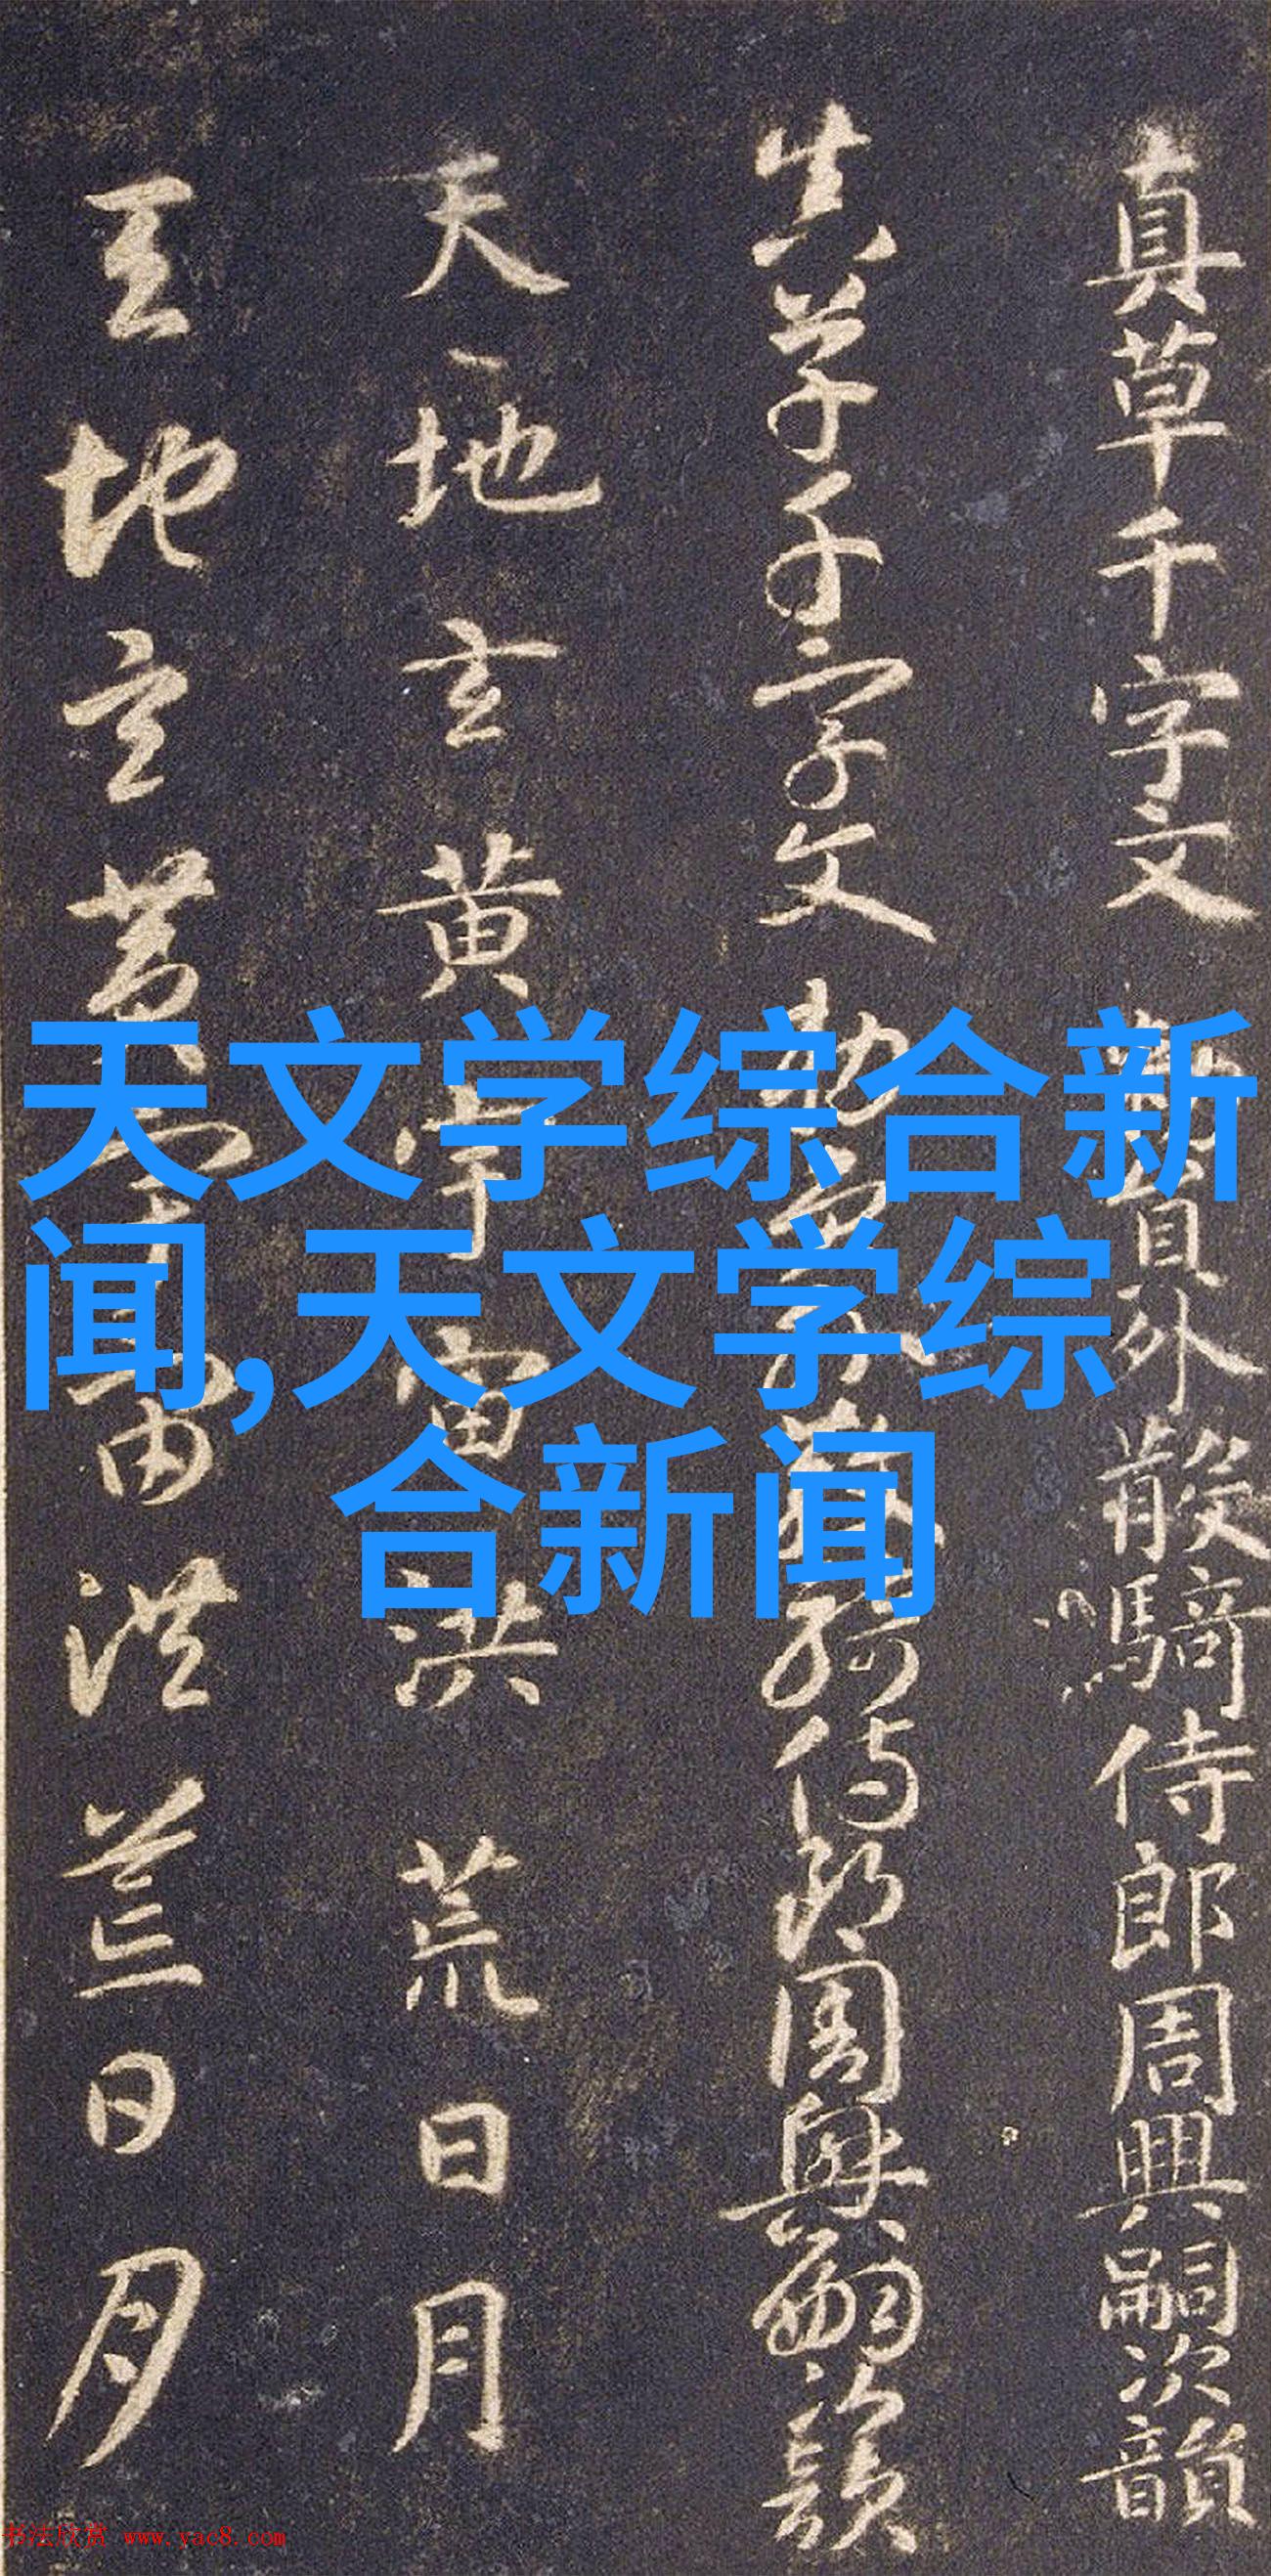 真草千字文 敕員外散騎侍郎周興嗣次韻
真草千字文 敕員外散騎侍郎周興嗣次韻
天地玄黃宇宙洪荒日月
天地玄黃宇宙洪荒日月
天文学综合新
闻,天文学综
合新闻
书法欣赏 www.yac8.com